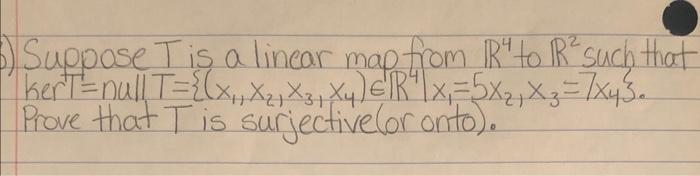 5) Suppose T is a linear map from ℝ⁴ to ℝ² such that
kerT=null T={(x₁, x₂, x₃, x₄)∈ℝ⁴|x₁=5x₂, x₃=7x₄}.
Prove that T is surjective(or onto).